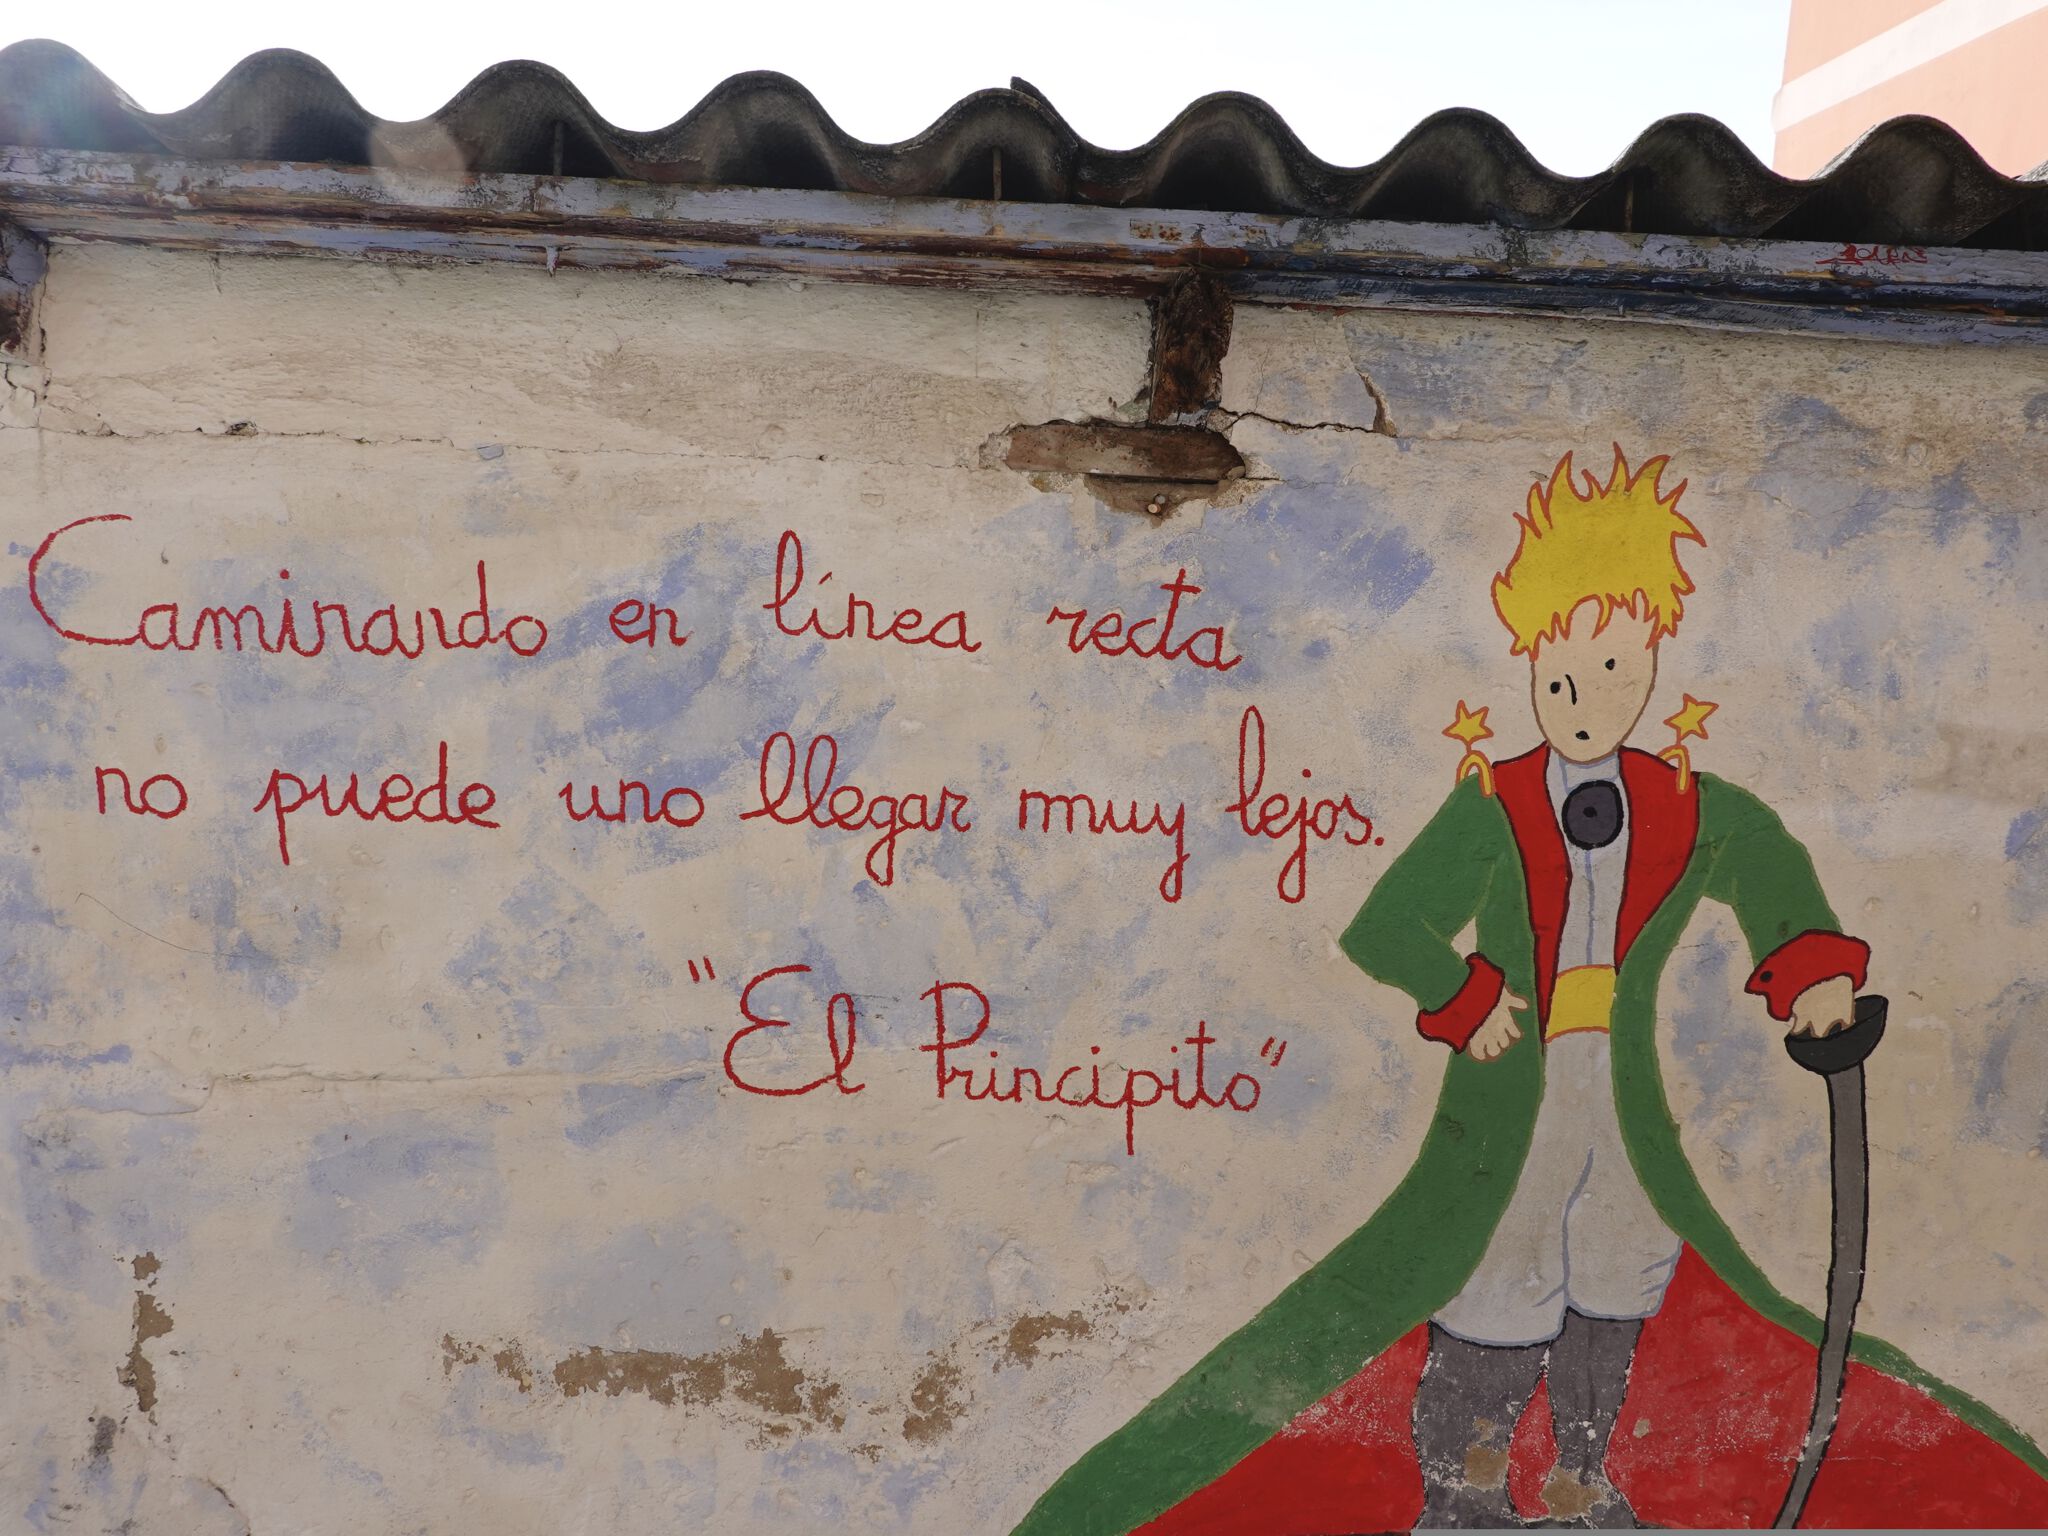 Caminando en línea recta
no puede uno llegar muy lejos.
"El Principito"